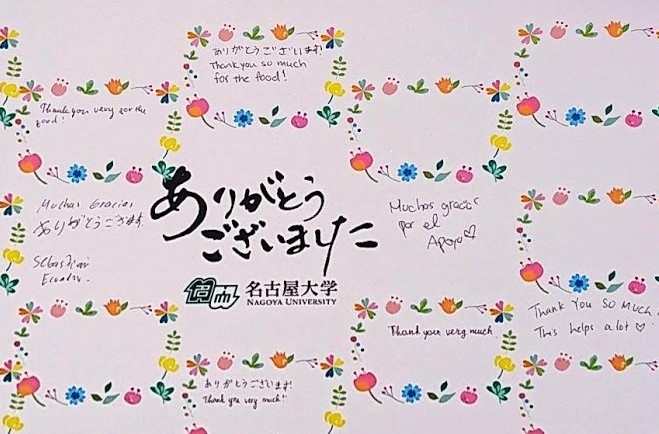 ありがとうございます!
Thank you so much
for the food!
Thank you very for the
food!
Muchas Gracias
ありがとうござます.
Sebastian
Ecuador.
ありがとう
ございました
名古屋大学
NAGOYA UNIVERSITY
Muchas gracias
por el
Apoyo♡
Thank you very much.
THANK YOU SO MUCH
This helps a lot ♡
ありがとうございます!
Thank you very much!!